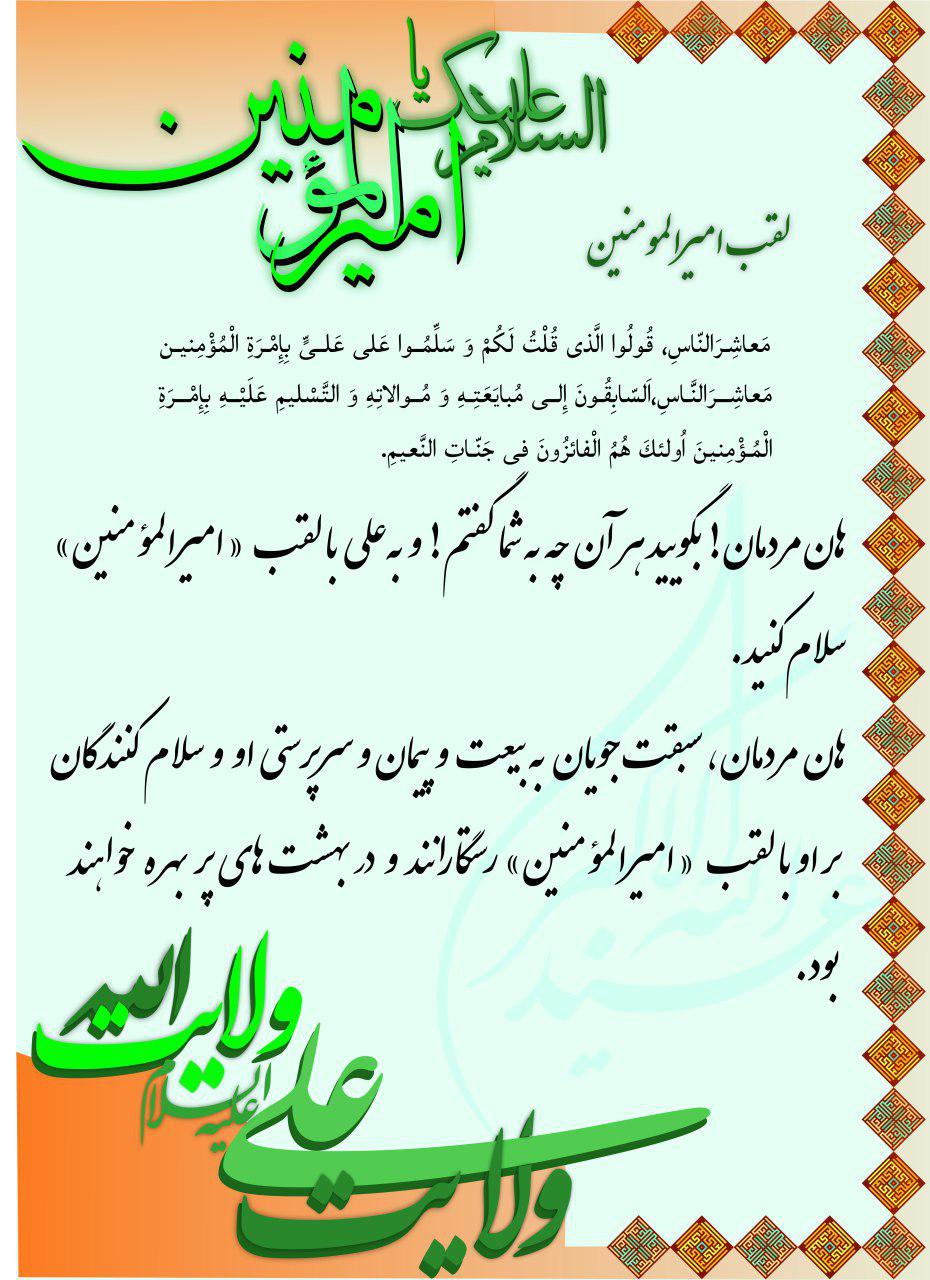 السلام علیک یا
امیرالمؤمنین
لقب امیرالمومنین
مَعاشِـرَالنّاسِ، قُولُوا الَّذی قُلْتُ لَکُمْ وَ سَلِّمُـوا عَلی عَلـیٍّ بِإِمْرَةِ الْمُؤْمِنیـن
مَعاشِــرَالنَّـاسِ،اَلسّابِقُـونَ إِلـی مُبایَعَتِـهِ وَ مُـوالاتِهِ وَ التَّسْلیمِ عَلَیْـهِ بِإِمْـــرَةِ
الْمُـؤْمِنینَ اُولئكَ هُمُ الْفائزُونَ فی جَنّـاتِ النَّعیمِ.
هان مردمان! بگویید هر آن چه به شما گفتم! و به علی با لقب «امیرالمؤمنین»
سلام کنید.
هان مردمان، سبقت جویان به بیعت و پیمان و سرپرستی او و سلام کنندگان
بر او با لقب «امیرالمؤمنین» رستگارانند و در بهشت های پر بهره خواهند
بود.
ولایت الله
ولایت علی
علیه السلام